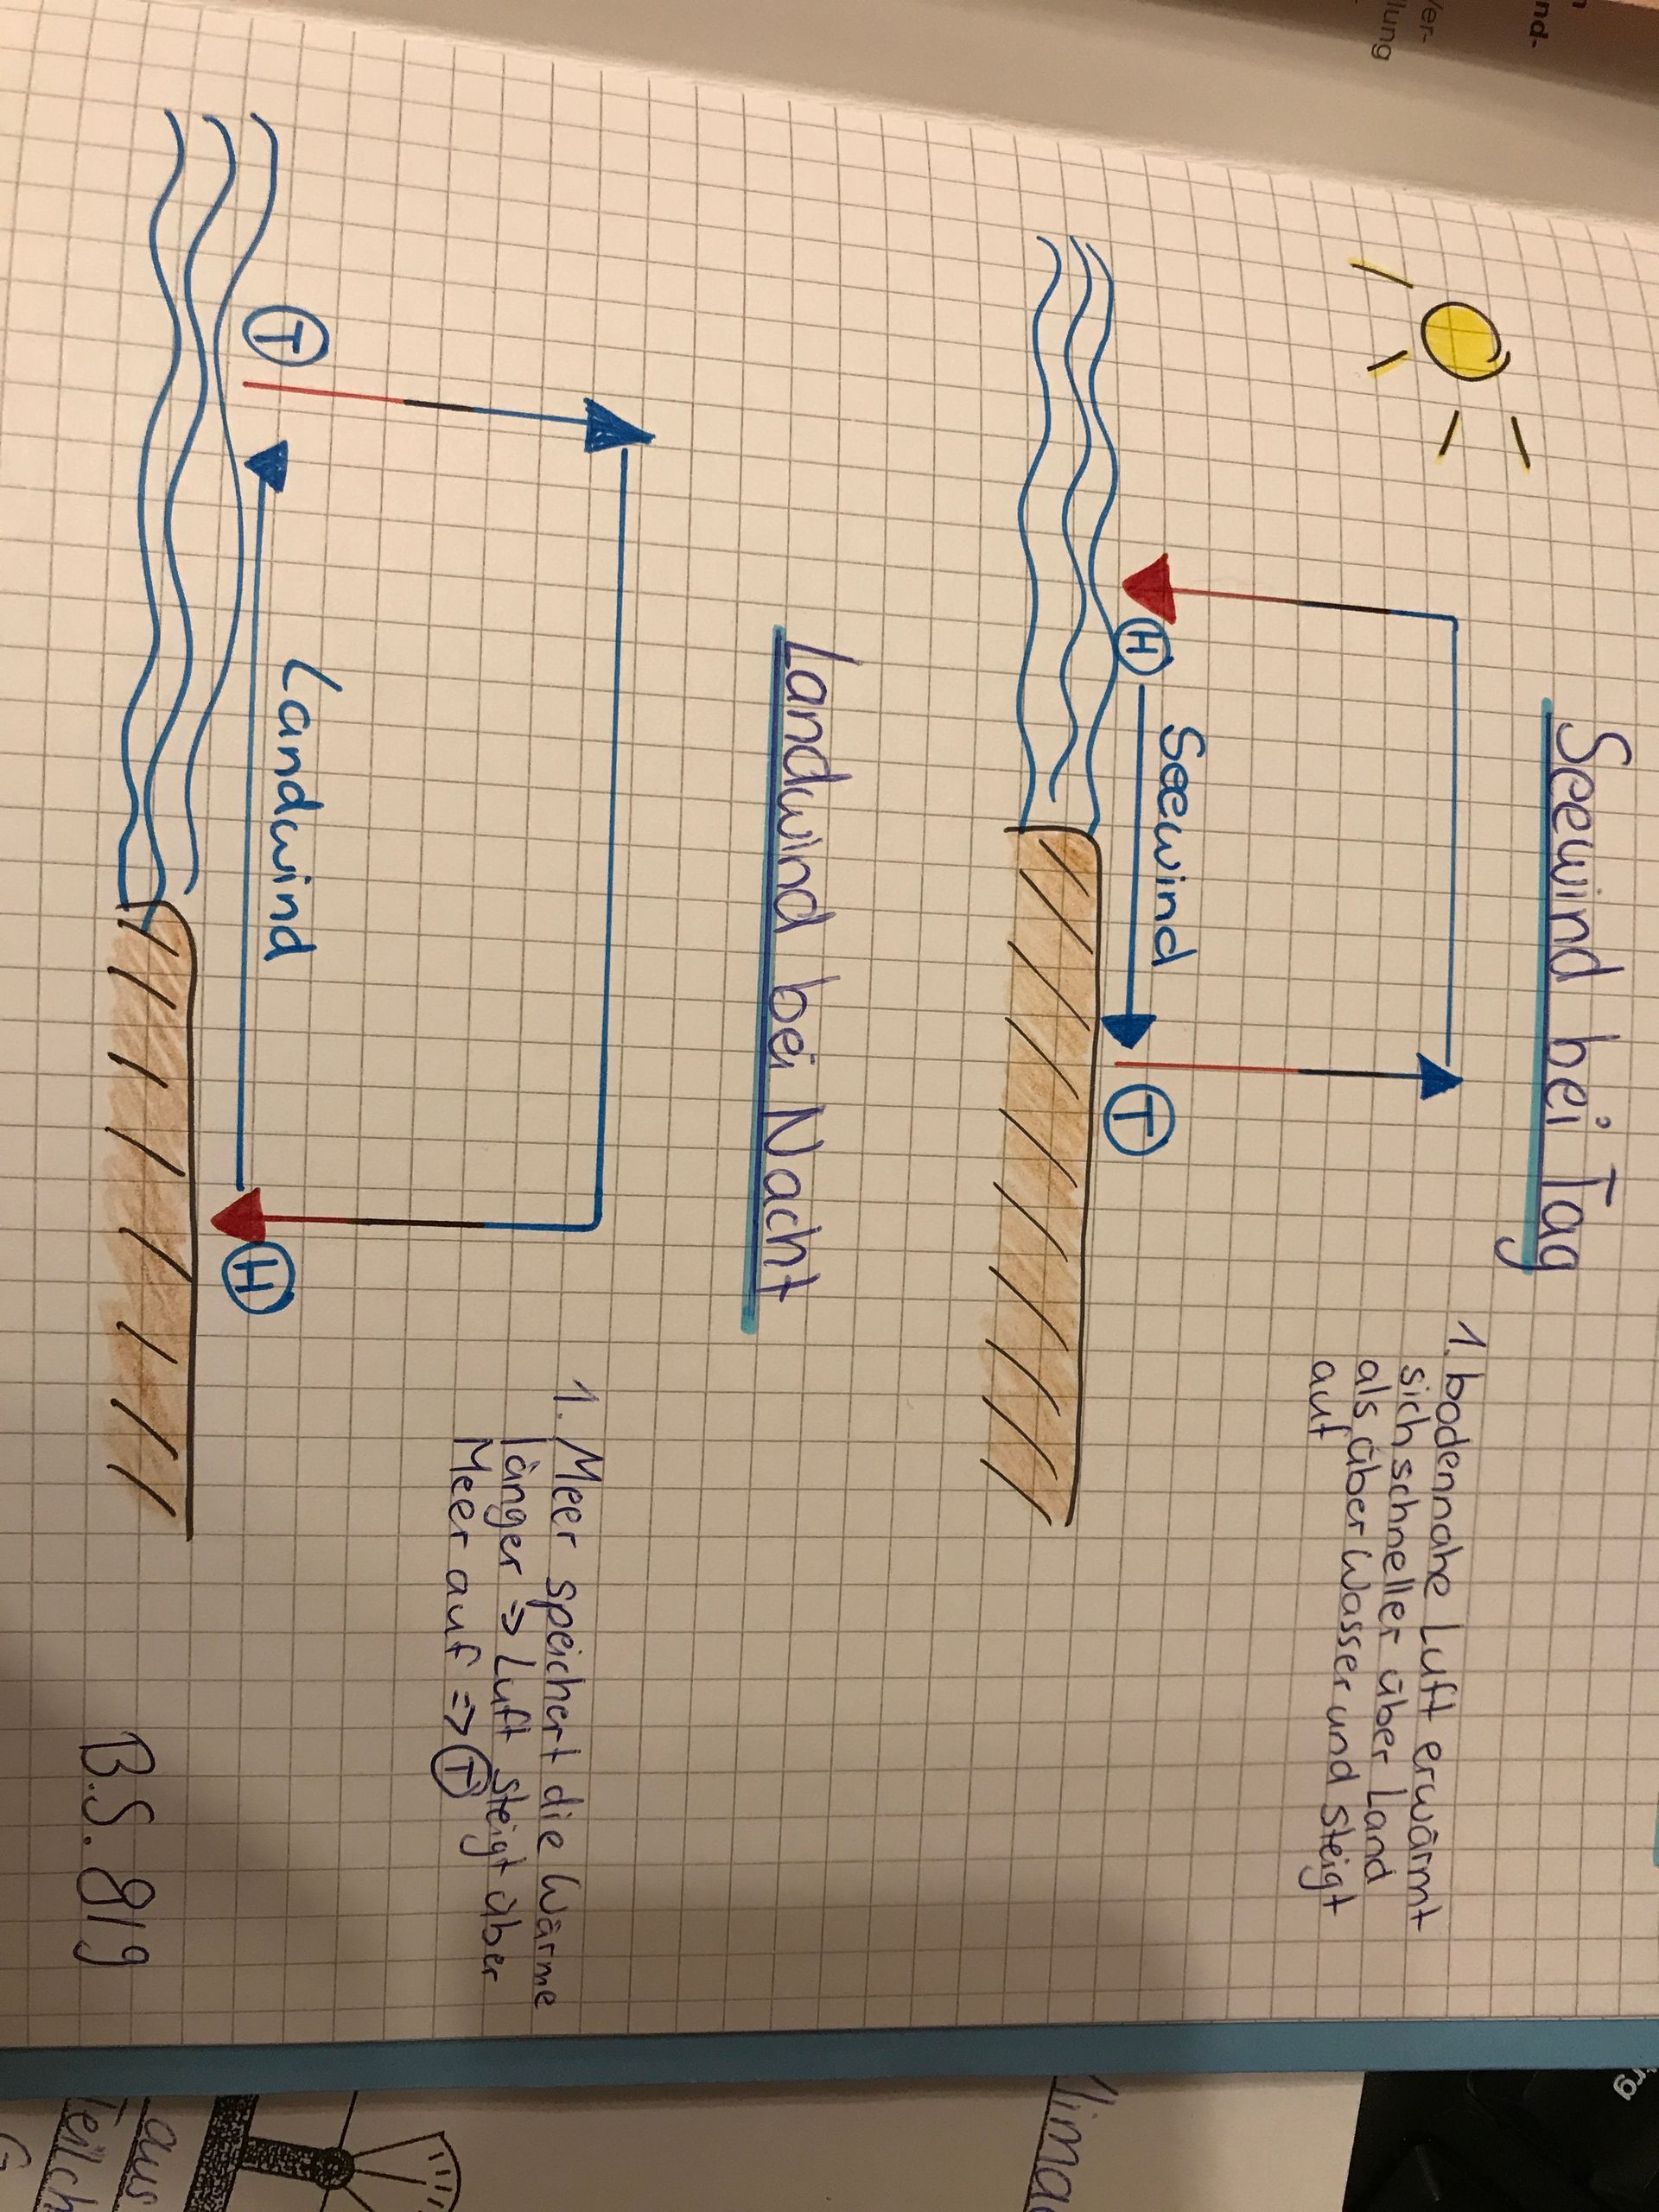 Seewind bei Tag
1. bodennahe Luft erwärmt
sich schneller über Land
als über Wasser und steigt
auf
Seewind
H
T
Landwind bei Nacht
1. Meer speichert die Wärme
länger => Luft steigt über
Meer auf => T
T
Landwind
H
B.S. 819
nd-
Ver-
lung
rg
aus